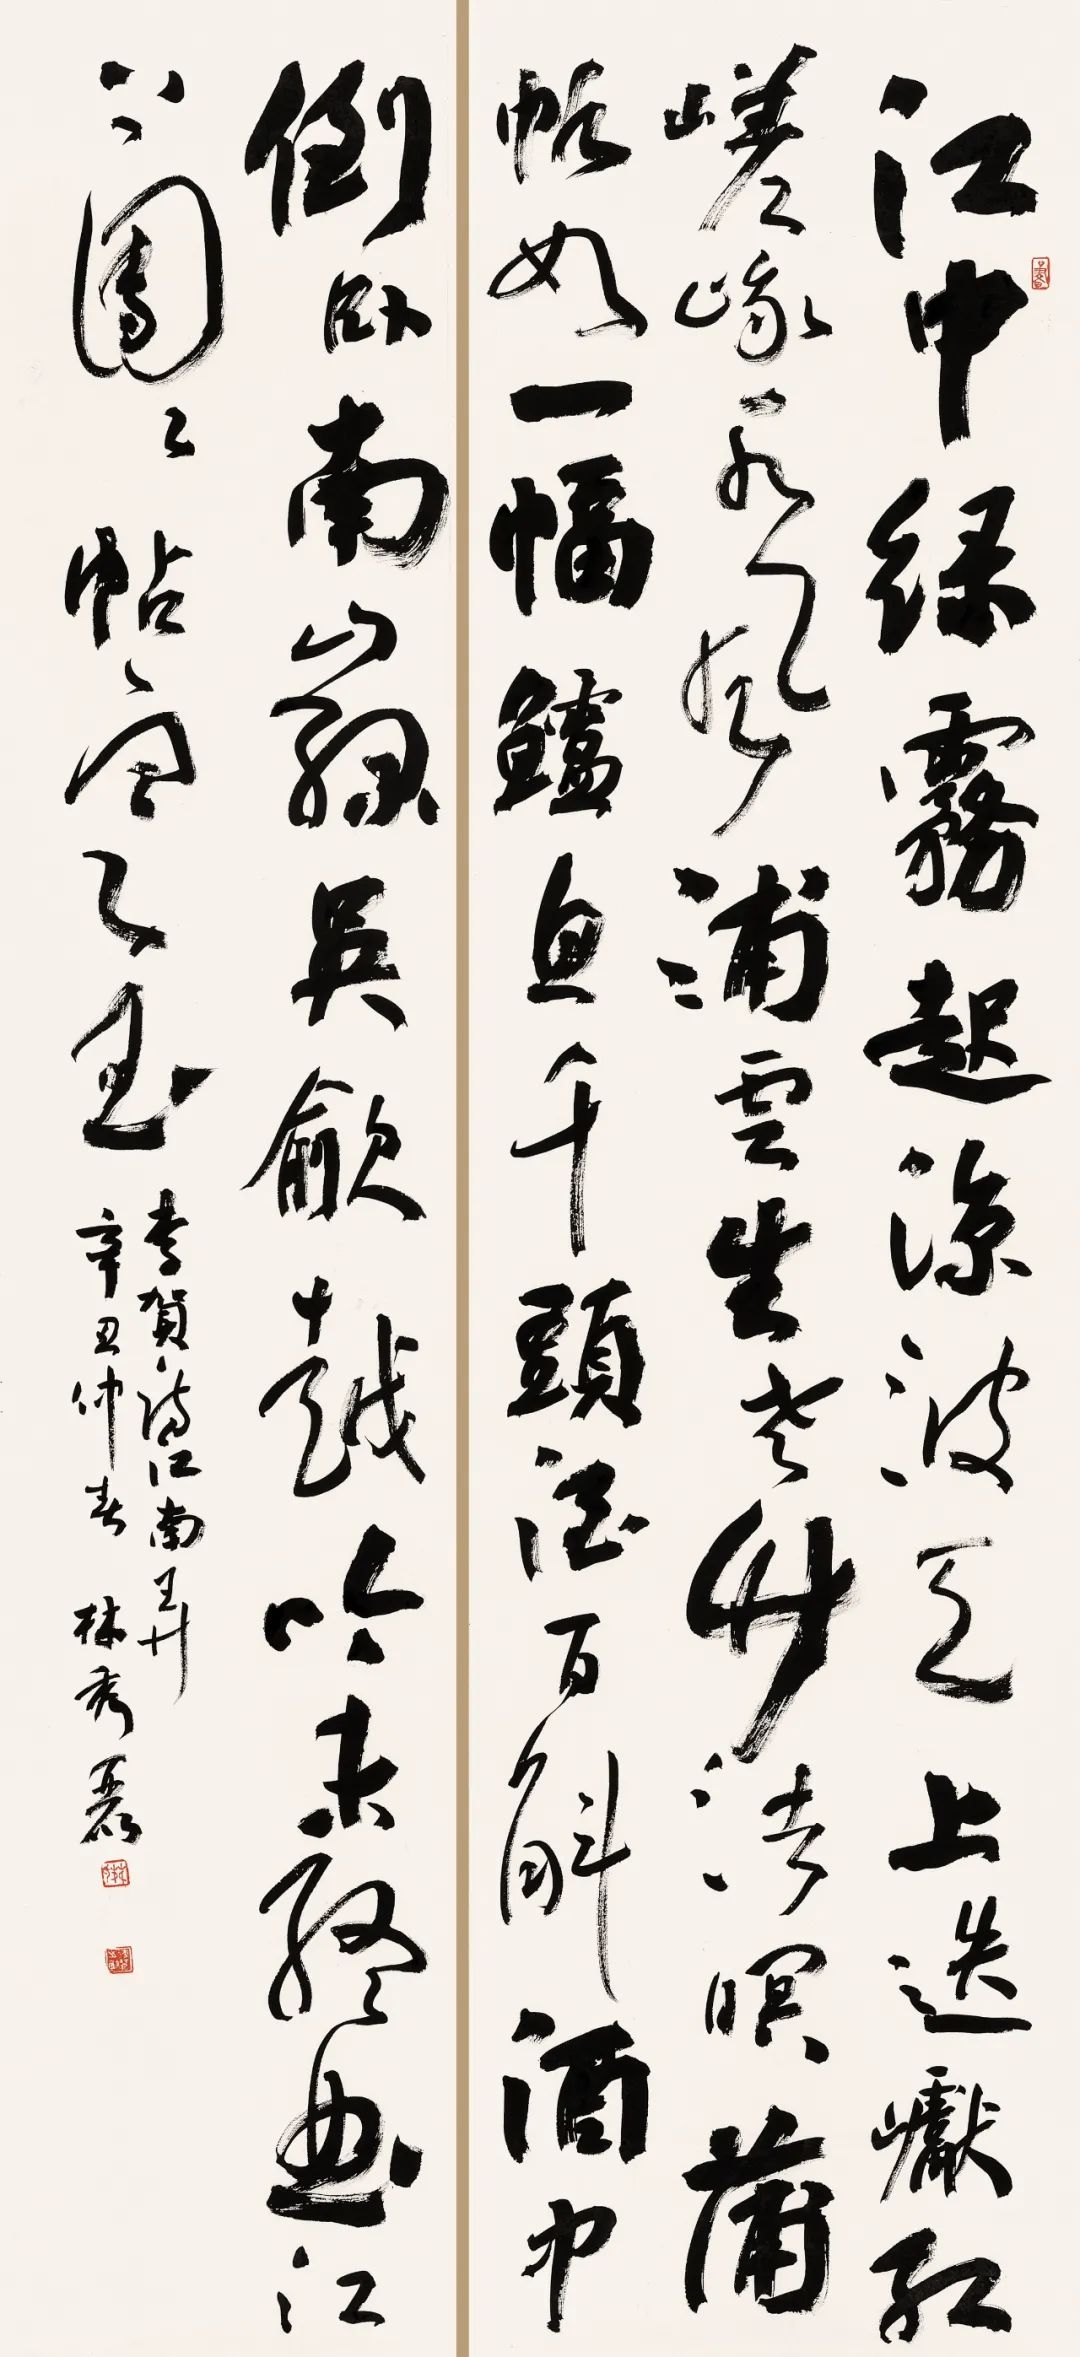 江中綠霧起涼波天上迭巘紅
嵯峨水風浦雲生老竹渚暝蒲
帆如一幅鱸魚千頭酒百斛酒中
倒卧南山綠吳歈越吟未終曲江
上團々帖寒玉
李賀詩江南弄
辛丑仲春 林秀磊